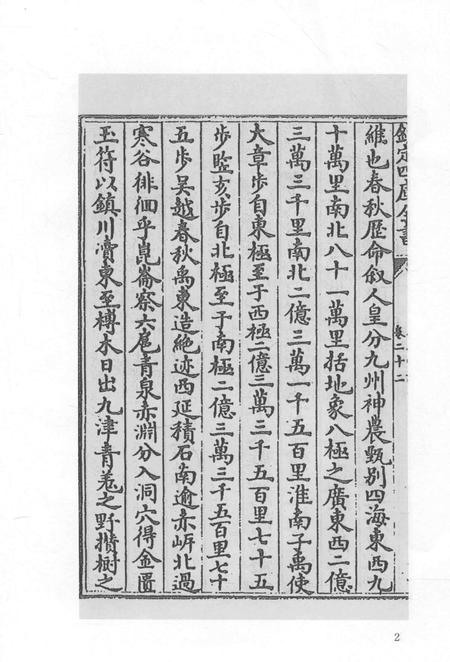 欽定四庫全書
卷二十二
維也春秋歷命叙人皇分九州神農甄别四海東西九
十萬里南北八十一萬里括地象八極之廣東西二億
三萬三千里南北二億三萬一千五百里淮南子萬使
大章步自東極至于西極二億三萬三千五百里七十五
步竪亥步自北極至于南極二億三萬三千五百里七十
五步吳越春秋禹東造絶迹西延積石南逾赤岍北過
寒谷徘徊乎崑崙察六扈青泉赤淵分入洞穴得金匱
玉符以鎮川瀆東至榑木日出九津青羌之野攢樹之
2